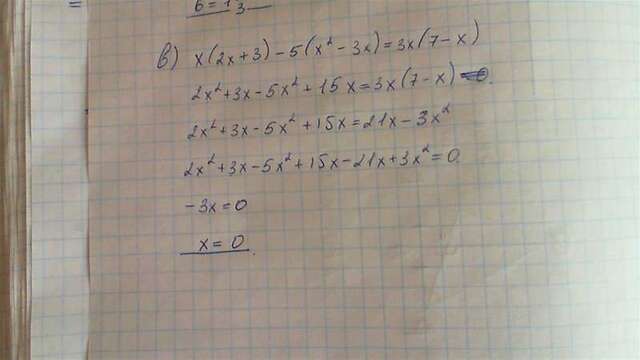 =
б = 1 3
в) x(2x+3) - 5(x² - 3x) = 3x(7-x)
2x² + 3x - 5x² + 15x = 3x(7-x)
2x² + 3x - 5x² + 15x = 21x - 3x²
2x² + 3x - 5x² + 15x - 21x + 3x² = 0
-3x = 0
x = 0.